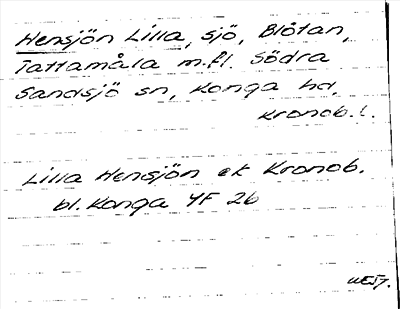 Hensjön Lilla, sjö, Blötan,
Tattamåla m.fl. Södra
Sandsjö sn, Konga hd,
Kronob. l.
Lilla Hensjön ek Kronob.
bl. Konga 4F 2b
WEST.